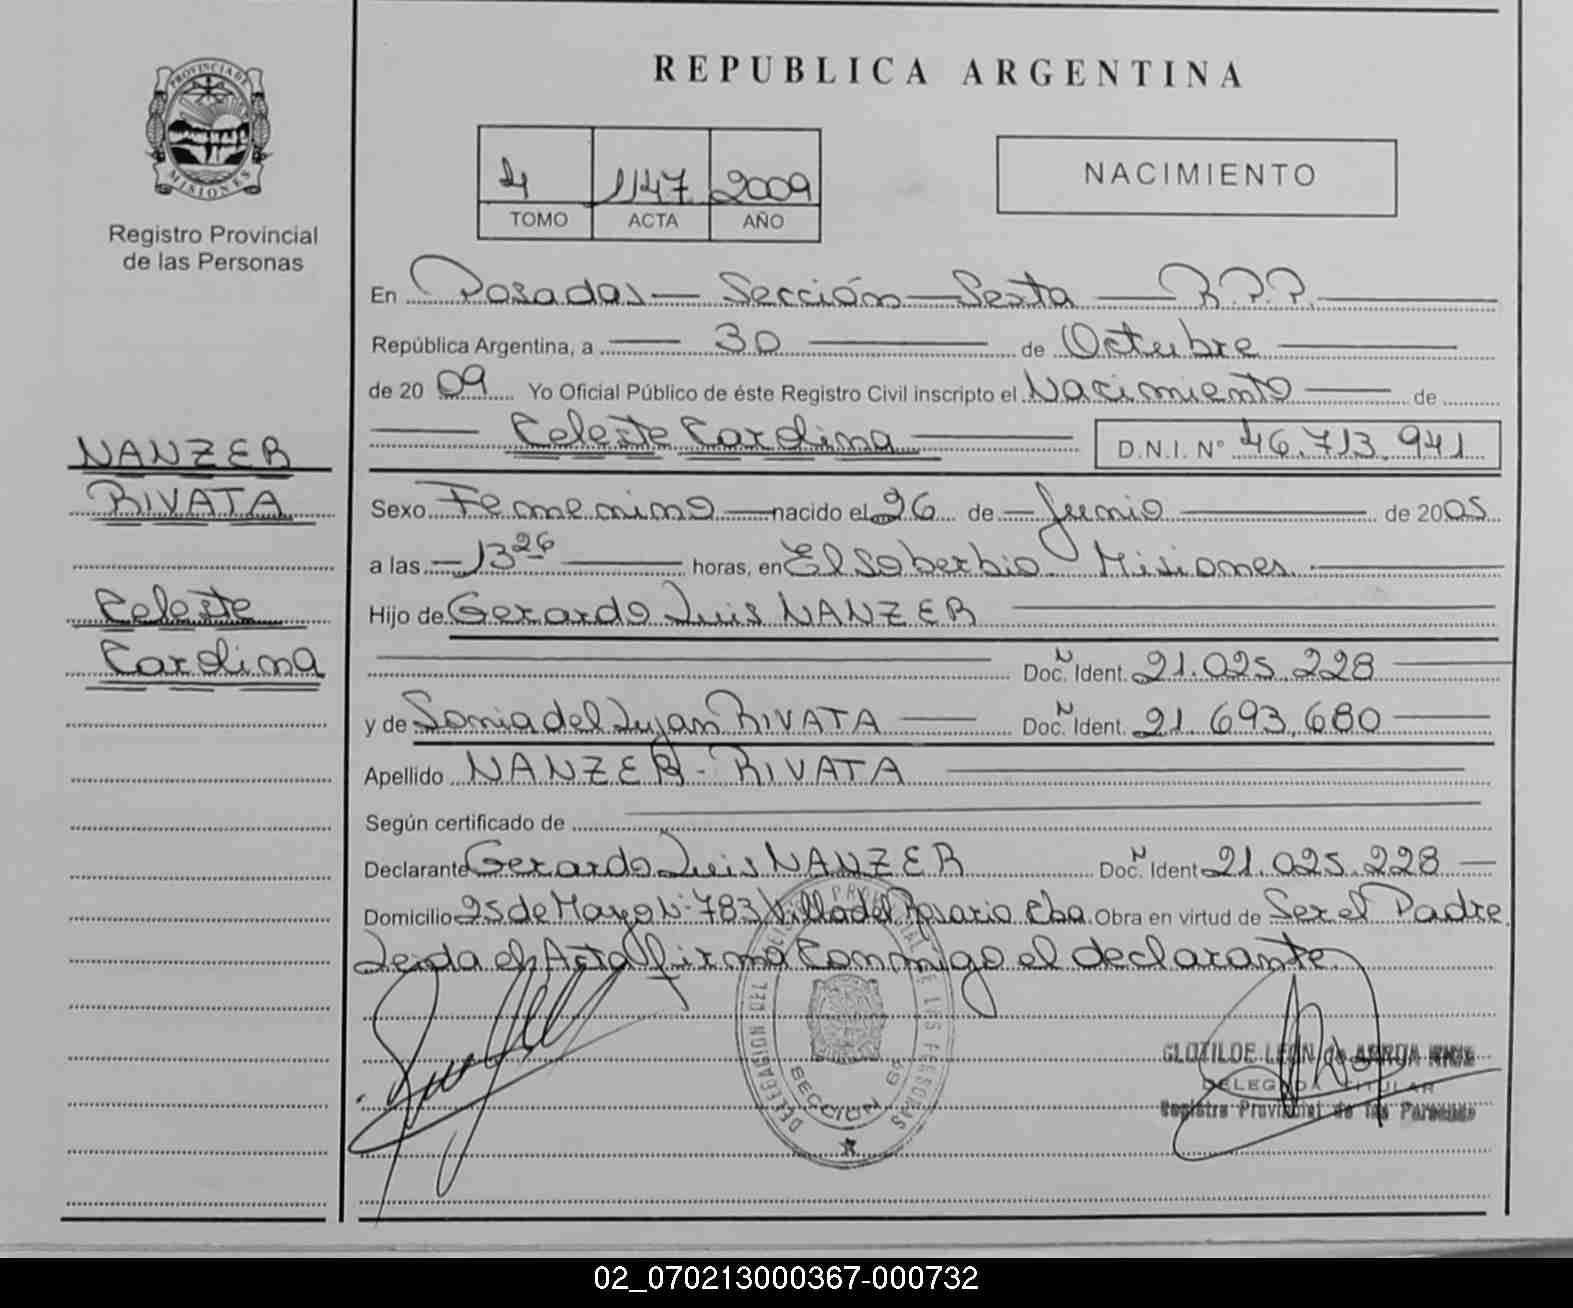 PROVINCIA DE
MISIONES
Registro Provincial
de las Personas
NANZER
RIVATA
Celeste
Carolina
REPUBLICA ARGENTINA
4 1147 2009
TOMO ACTA AÑO
NACIMIENTO
En Posadas — Sección — Sexta — R.P.P. —
República Argentina, a — 30 — de Octubre —
de 2009 Yo Oficial Público de éste Registro Civil inscripto el Nacimiento — de
— Celeste Carolina — D.N.I. Nº 46.713.941
Sexo Femenino — nacido el 26 de — Junio — de 2005
a las — 13 26 — horas, en El Soberbio Misiones —
Hijo de Gerardo Luis NANZER —
— Doc. N Ident. 21.025.228 —
y de Sonia del Lujan RIVATA — Doc. N Ident. 21.693.680 —
Apellido NANZER - RIVATA —
Según certificado de —
Declarante Gerardo Luis NANZER Doc. N Ident 21.025.228 —
Domicilio 25 de Mayo Nº 783 Villa del Rosario Cba. Obra en virtud de Ser el Padre
Leida el Acta firma Conmigo el declarante.
DELEGACION DEL REGISTRO PROVINCIAL DE LAS PERSONAS
SECCION 6ª
CLOTILDE LEON de
DELEGADA TITULAR
Registro Provincial de las Personas
02_070213000367-000732